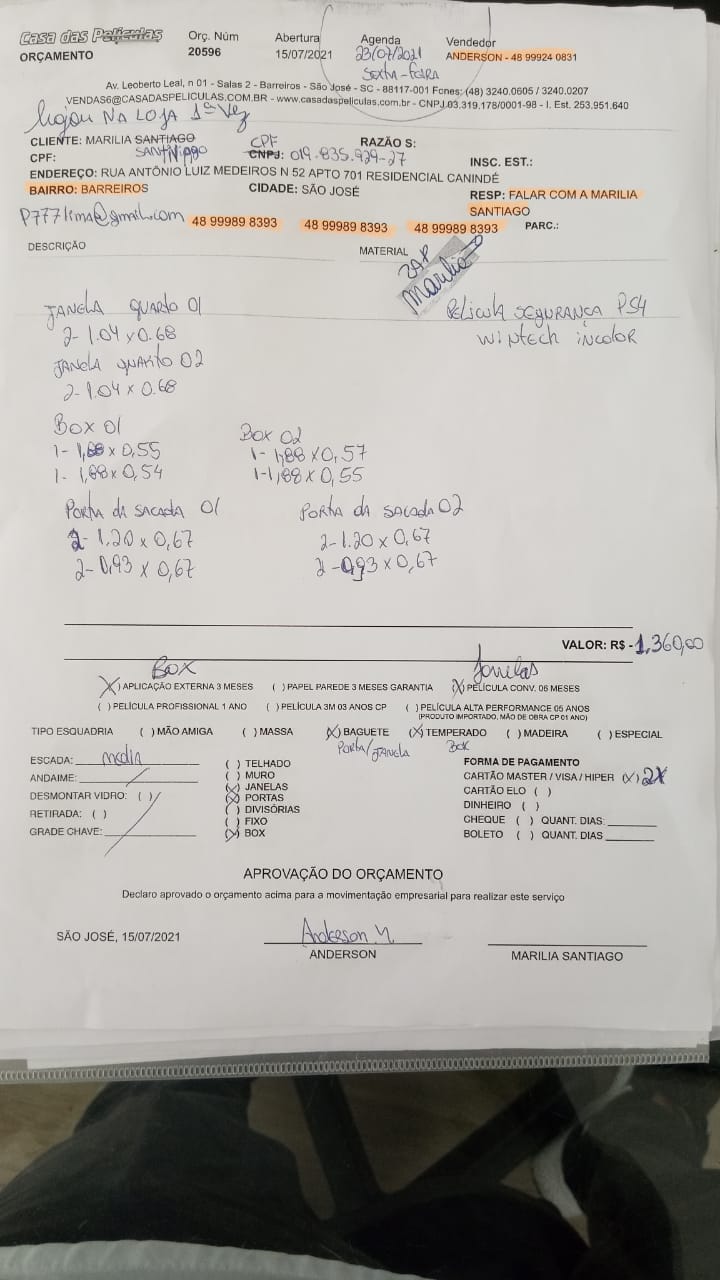 Casa das Películas
ORÇAMENTO
Orç. Núm
20596
Abertura
15/07/2021
Agenda
23/07/2021
SEXTA-FEIRA
Vendedor
ANDERSON - 48 99924 0831
Av. Leoberto Leal, n 01 - Salas 2 - Barreiros - São José - SC - 88117-001 Fones: (48) 3240.0605 / 3240.0207
VENDAS6@CASADASPELICULAS.COM.BR - www.casadaspeliculas.com.br - CNPJ 03.319.178/0001-98 - I. Est. 253.951.640
ligou NA LOJA 1ª Vez
CLIENTE: MARILIA SANTIAGO
SANTHIAGO
CPF
RAZÃO S:
CPF:
CNPJ: 019.835.929-27
INSC. EST.:
ENDEREÇO: RUA ANTÔNIO LUIZ MEDEIROS N 52 APTO 701 RESIDENCIAL CANINDÉ
BAIRRO: BARREIROS CIDADE: SÃO JOSÉ RESP: FALAR COM A MARILIA
SANTIAGO
P777lima@gmil.com 48 99989 8393 48 99989 8393 48 99989 8393 PARC.:
DESCRIÇÃO MATERIAL
Marilia
JANELA QUARTO 01
2- 1.04 x 0.68
JANELA QUARTO 02
2- 1.04 x 0.68
PELICULA SEGURANÇA PS4
WINTECH INCOLOR
BOX 01
1- 1,88 x 0,55
1- 1,88 x 0,54
BOX 02
1- 1,88 x 0,57
1- 1,88 x 0,55
PORTA DA SACADA 01
2- 1.20 x 0,67
2- 0,93 x 0,67
PORTA DA SACADA 02
2- 1.20 x 0,67
2- 0,93 x 0,67
VALOR: R$ - 1.360,00
BOX
Janelas
(X) APLICAÇÃO EXTERNA 3 MESES ( ) PAPEL PAREDE 3 MESES GARANTIA (X) PELÍCULA CONV. 06 MESES
( ) PELÍCULA PROFISSIONAL 1 ANO ( ) PELÍCULA 3M 03 ANOS CP ( ) PELÍCULA ALTA PERFORMANCE 05 ANOS
(PRODUTO IMPORTADO, MÃO DE OBRA CP 01 ANO)
TIPO ESQUADRIA ( ) MÃO AMIGA ( ) MASSA (X) BAGUETE (X) TEMPERADO ( ) MADEIRA ( ) ESPECIAL
PORTA/JANELA BOX
ESCADA: media
ANDAIME:
DESMONTAR VIDRO: ( )
RETIRADA: ( )
GRADE CHAVE:
( ) TELHADO
( ) MURO
(X) JANELAS
(X) PORTAS
( ) DIVISÓRIAS
( ) FIXO
(X) BOX
FORMA DE PAGAMENTO
CARTÃO MASTER / VISA / HIPER (X) 2X
CARTÃO ELO ( )
DINHEIRO ( )
CHEQUE ( ) QUANT. DIAS:
BOLETO ( ) QUANT. DIAS
APROVAÇÃO DO ORÇAMENTO
Declaro aprovado o orçamento acima para a movimentação empresarial para realizar este serviço
SÃO JOSÉ, 15/07/2021
Anderson M
ANDERSON
MARILIA SANTIAGO